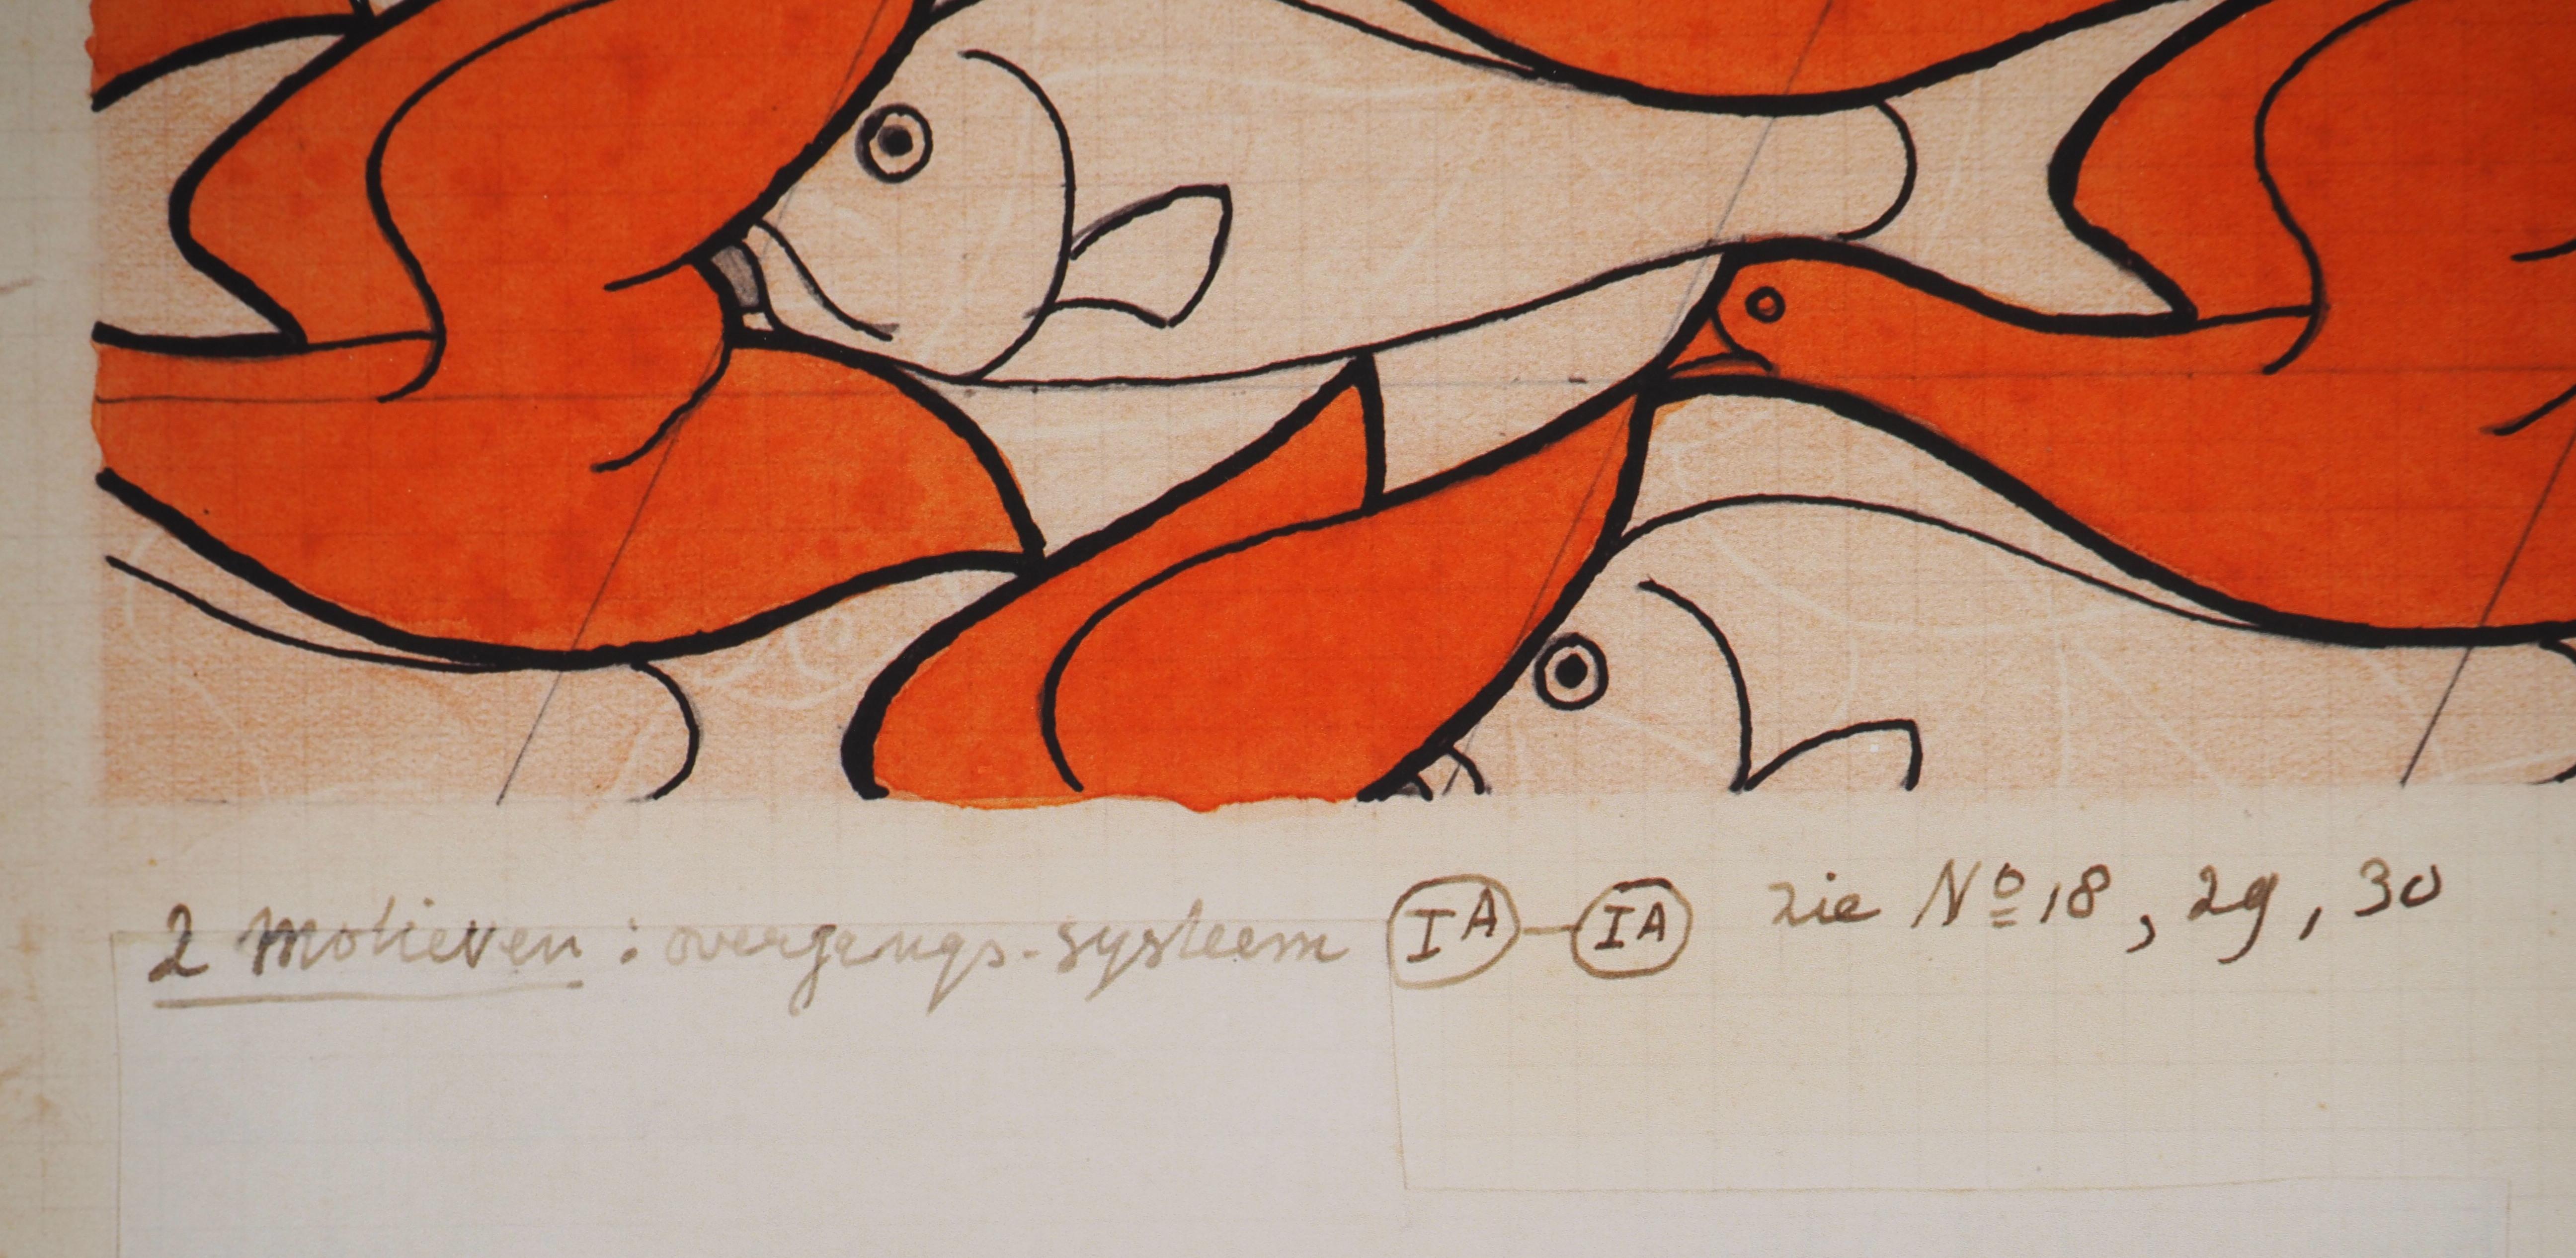 2 motieven : overgangs-systeem IA - IA zie Nº 18, 29, 30